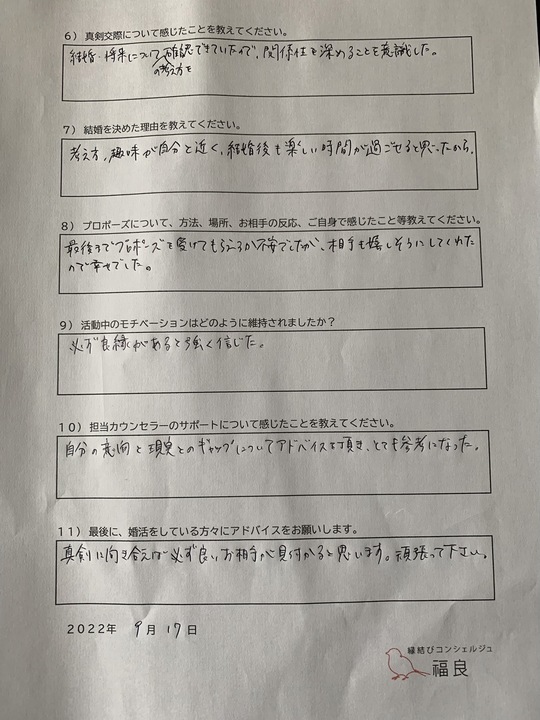 6） 真剣交際について感じたことを教えてください。
結婚・将来について確認できていたので、関係性を深めることを意識した。
の考え方を
7） 結婚を決めた理由を教えてください。
考え方、趣味が自分と近く、結婚後も楽しい時間が過ごせると思ったから。
8） プロポーズについて、方法、場所、お相手の反応、ご自身で感じたこと等教えてください。
最後までプロポーズを受けてもらえるか不安でしたが、相手も嬉しそうにしてくれた
ので幸せでした。
9） 活動中のモチベーションはどのように維持されましたか？
必ず良縁があると強く信じた。
10） 担当カウンセラーのサポートについて感じたことを教えてください。
自分の意向と現実とのギャップについてアドバイスを頂き、とても参考になった。
11） 最後に、婚活をしている方々にアドバイスをお願いします。
真剣に向き合えば必ず良いお相手が見付かると思います。頑張って下さい。
2022年 9月17日
縁結びコンシェルジュ
福良